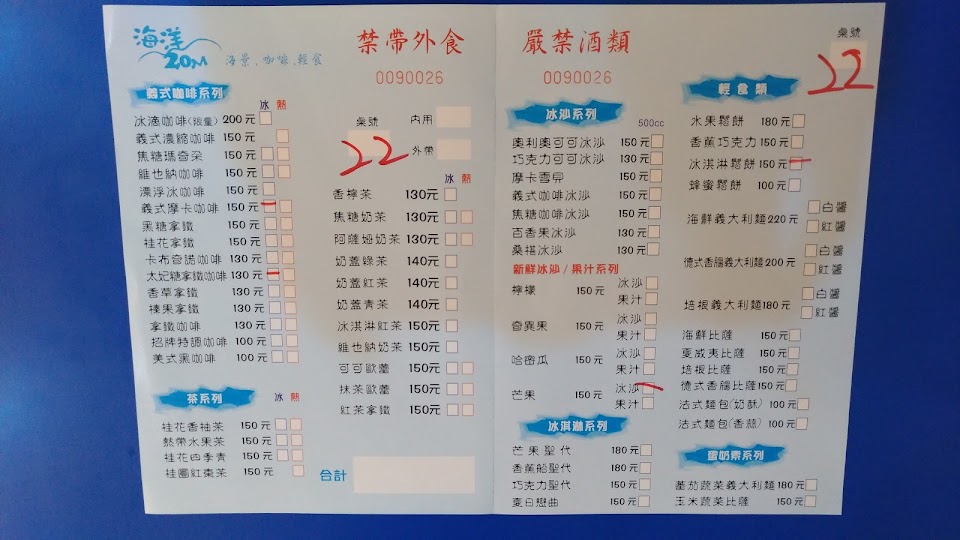 海洋
20M
海景、咖啡、輕食
禁帶外食
0090026
義式咖啡系列
冰 熱
冰滴咖啡(限量) 200元
義式濃縮咖啡 150元
焦糖瑪奇朵 150元
維也納咖啡 150元
漂浮冰咖啡 150元
義式摩卡咖啡 150元
黑糖拿鐵 150元
桂花拿鐵 150元
卡布奇諾咖啡 130元
太妃糖拿鐵咖啡 130元
香草拿鐵 130元
榛果拿鐵 130元
拿鐵咖啡 130元
招牌特調咖啡 100元
美式黑咖啡 100元
茶系列
冰 熱
桂花香柚茶 150元
熱帶水果茶 150元
桂花四季青 150元
桂圓紅棗茶 150元
桌號
22
內用
外帶
冰 熱
香檸茶 130元
焦糖奶茶 130元
阿薩姆奶茶 130元
奶蓋綠茶 140元
奶蓋紅茶 140元
奶蓋青茶 140元
冰淇淋紅茶 150元
維也納奶茶 150元
可可歐蕾 150元
抹茶歐蕾 150元
紅茶拿鐵 150元
合計
嚴禁酒類
0090026
桌號
22
冰沙系列
500cc
奧利奧可可冰沙 150元
巧克力可可冰沙 130元
摩卡雪泉 150元
義式咖啡冰沙 150元
焦糖咖啡冰沙 150元
百香果冰沙 130元
桑椹冰沙 130元
新鮮冰沙/果汁系列
檸檬 150元 冰沙
果汁
奇異果 150元 冰沙
果汁
哈密瓜 150元 冰沙
果汁
芒果 150元 冰沙
果汁
冰淇淋系列
芒果聖代 180元
香蕉船聖代 180元
巧克力聖代 150元
夏日戀曲 150元
輕食類
水果鬆餅 180元
香蕉巧克力 150元
冰淇淋鬆餅 150元
蜂蜜鬆餅 100元
海鮮義大利麵 220元 白醬
紅醬
德式香腸義大利麵 200元 白醬
紅醬
培根義大利麵 180元 白醬
紅醬
海鮮比薩 150元
夏威夷比薩 150元
培根比薩 150元
德式香腸比薩 150元
法式麵包(奶酥) 100元
法式麵包(香蒜) 100元
蛋奶素系列
蕃茄蔬菜義大利麵 180元
玉米蔬菜比薩 150元